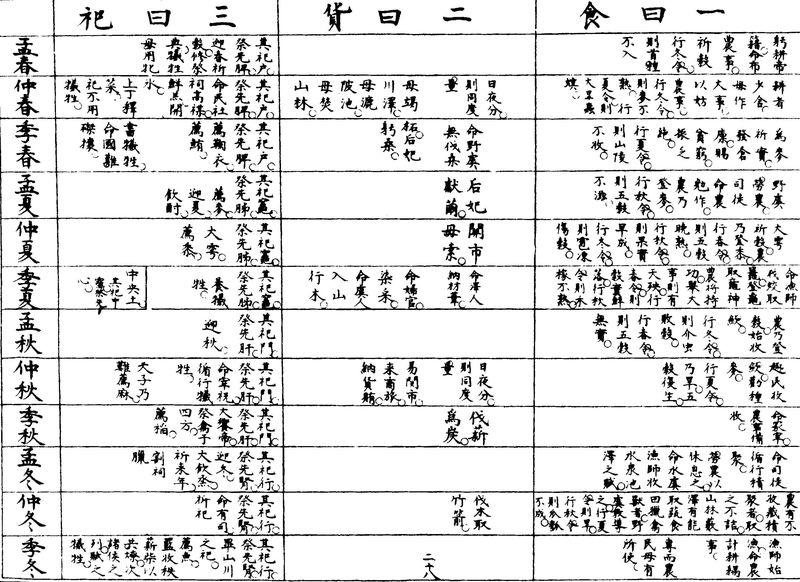 一曰食
二曰貨
三曰祀
孟春
躬耕帝
籍命布
農事
祈穀
行冬令
則首種
不入
其祀户
祭先脾
迎春祈
穀修祭
典犧牲
毋用牝
仲春
耕者
少舍
毋作
大事
以妨
農事
行冬令
則麥不
熟行
夏令則
大旱蟲
螟
日夜分
則同度
量
毋竭
川澤
毋漉
陂池
毋焚
山林
其祀户
祭先脾
命民社
祠高禖
鮮羔開
冰
上丁釋
菜
祀不用
犧牲
季春
為麥
祈實
發倉
廩賜
貧窮
振乏
絶
行夏令
則山陵
不收
命野虞
無伐桑
柘后妃
躬桑
其祀户
祭先脾
薦鞠衣
薦鮪
書犧牲
命國難
磔攘
孟夏
野虞
勞農
司徒
命農
勉作
農乃
登麥
行秋令
則五穀
不滋
后妃
獻繭
其祀竈
祭先肺
薦麥
迎夏
飲酎
仲夏
大雩
祈穀
農乃登黍
行春令
則五穀
晚熟
行秋令
則果實
早成
行冬令
則雹凍
傷穀
關市
毋索
其祀竈
祭先肺
大雩
薦黍
季夏
命漁師
伐蛟取
鼉登龜
取黿神
農將持
功舉大
事則有
天殃行
春令則
穀實鮮
落行秋
令則禾
稼不熟
命澤人
納材葦
命婦官
染采
命虞人
入山
行木
其祀竈
祭先肺
養犧
牲
中央土
其祀中
霤祭先
心
孟秋
農乃登
穀始收
斂
行冬令
則介虫
敗穀
行春令
則五穀
無實
其祀門
祭先肝
迎秋
仲秋
趣民收
斂勸種
麥
行夏令
乃旱五
穀復生
日夜分
則同度
量
易關市
來商旅
納貨賄
其祀門
祭先肝
命宰祝
循行犧
牲
天子乃
難薦麻
季秋
命冢宰
農事備
收
伐薪
為炭
其祀門
祭先肝
大饗帝
祭禽于
四方
薦稻
孟冬
命司徒
循行積
聚
勞農以
休息之
命水虞
漁師收
水泉池
澤之賦
其祀行
祭先腎
迎冬
大飲烝
祈來年
割祠
臘
仲冬
農有不
收藏積
聚者取
之不詰
山林藪
澤有能
取蔬食
田獵禽
獸者野
虞教導
之行夏
令則旱
行秋令
則瓜瓠
不成
伐木取
竹箭
其祀行
祭先腎
命有司
祈祀
季冬
漁師始
漁命農
計耕耦
事
專而農
民毋有
所使
其祀行
祭先腎
畢山川
之祀
薦魚
監收秩
薪柴以
共燎次
諸侯之
列賦之
犧牲
二十八